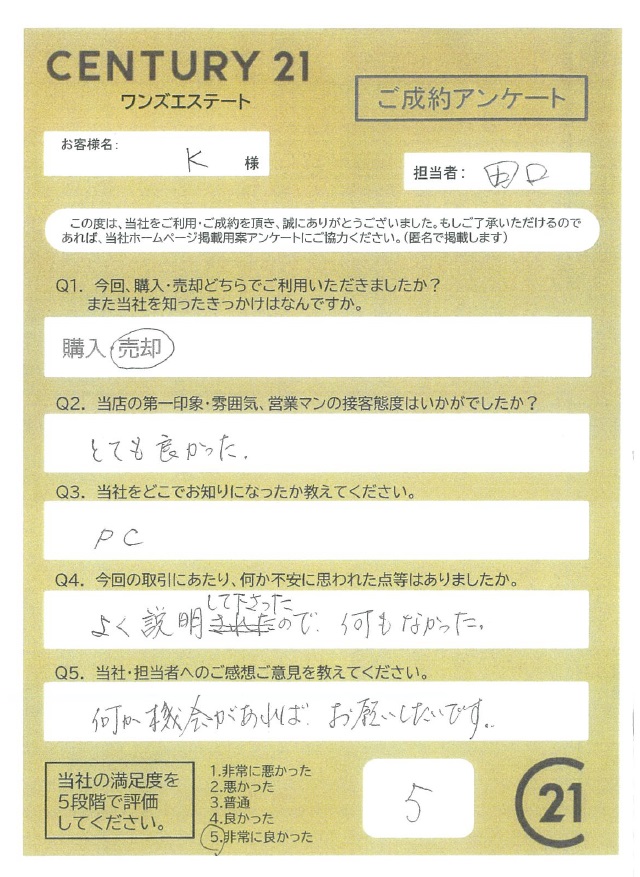 CENTURY 21
ワンズエステート
ご成約アンケート
お客様名：
K 様
担当者： 田口
この度は、当社をご利用・ご成約を頂き、誠にありがとうございました。もしご了承いただけるので
あれば、当社ホームページ掲載用案アンケートにご協力ください。（匿名で掲載します）
Q1. 今回、購入・売却どちらでご利用いただきましたか？
また当社を知ったきっかけはなんですか。
購入・売却
Q2. 当店の第一印象・雰囲気、営業マンの接客態度はいかがでしたか？
とても良かった.
Q3. 当社をどこでお知りになったか教えてください。
PC
Q4. 今回の取引にあたり、何か不安に思われた点等はありましたか。
して下さった
よく説明されたので、何もなかった。
Q5. 当社・担当者へのご感想ご意見を教えてください。
何か機会があれば、お願いしたいです。
当社の満足度を
5段階で評価
してください。
1.非常に悪かった
2.悪かった
3.普通
4.良かった
5.非常に良かった
5
21